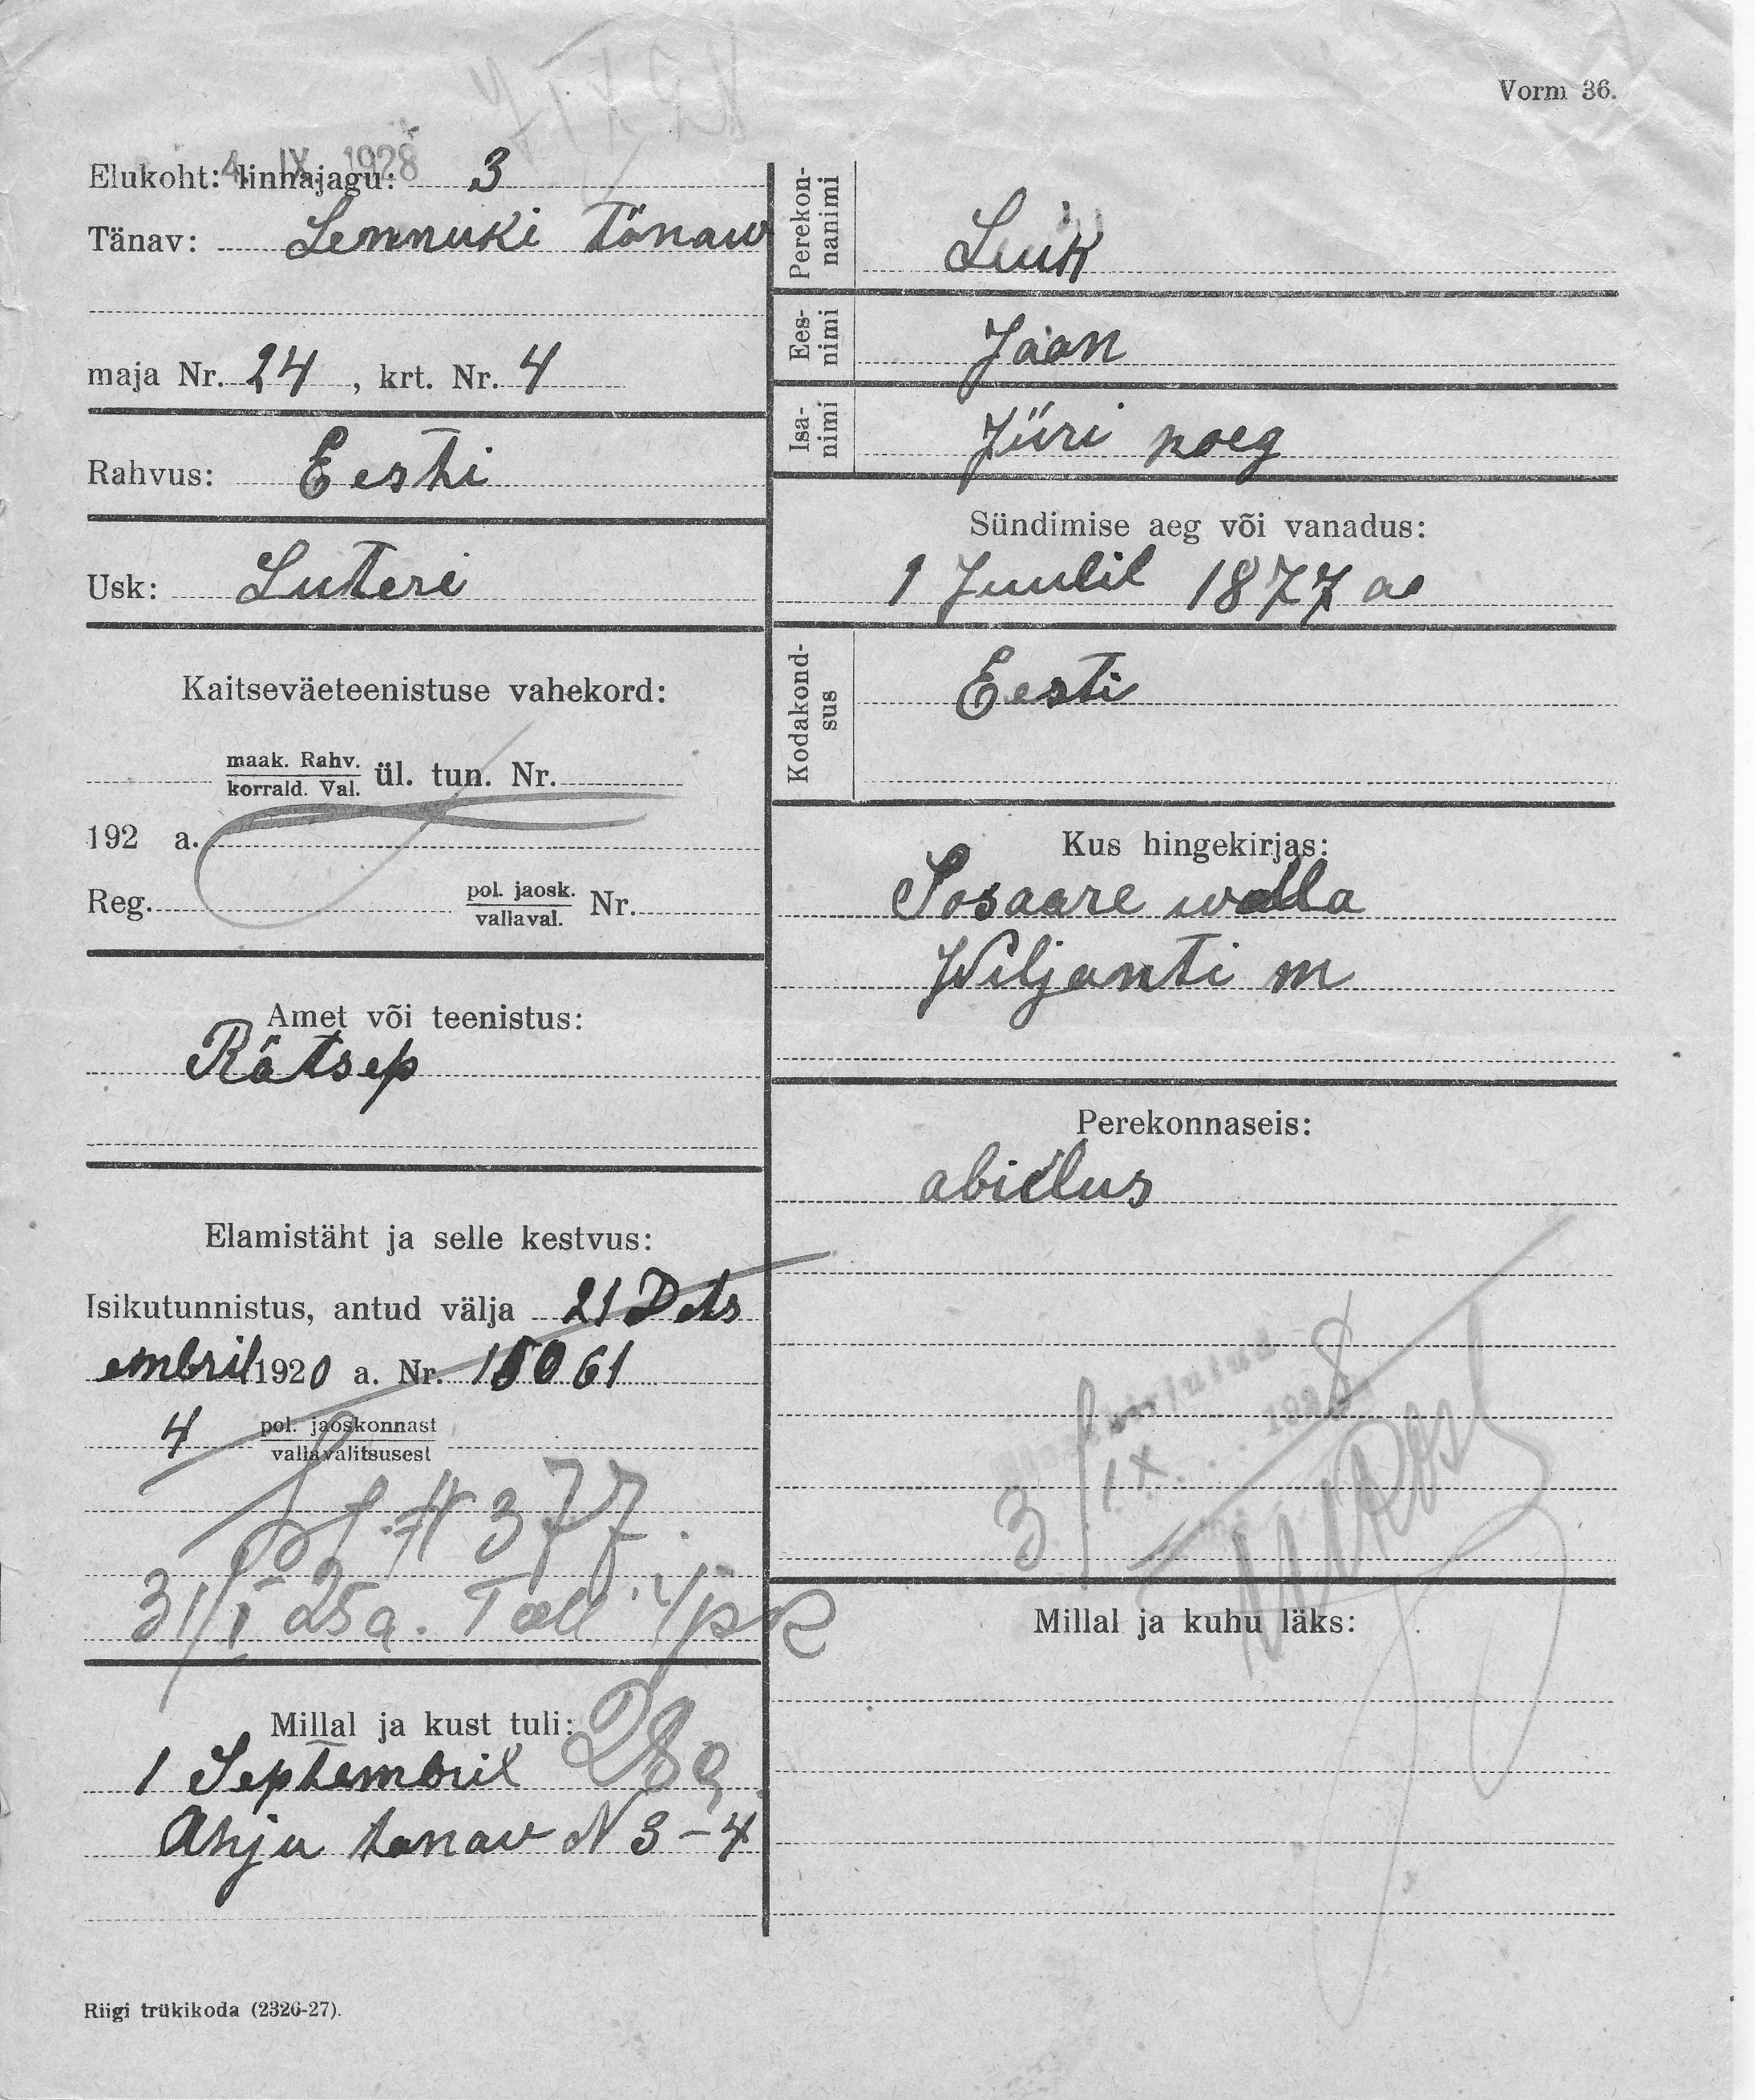 Vorm 36.
4. IX. 1928
Elukoht: linnajagu: 3
Tänav: Lennuki Tänaw
maja Nr. 24, krt. Nr. 4
Rahvus: Eesti
Usk: Luteri
Kaitseväeteenistuse vahekord:
maak. Rahv.
korrald. Val. ül. tun. Nr.
192 a.
Reg. pol. jaosk.
vallaval. Nr.
Amet või teenistus:
Rätsep
Elamistäht ja selle kestvus:
Isikutunnistus, antud välja 21 Dets
embril 1920 a. Nr. 15061
4 pol. jaoskonnast
vallavalitsusest
N 377.
31/I 25 a. Tall. 4/pk
Millal ja kust tuli:
1 Septembril 28 a
Ahju tanaw N 3-4
Riigi trükikoda (2326-27).
Perekon-
nanimi
Luik
Ees-
nimi
Jaan
Isa-
nimi
Jüri poeg
Sündimise aeg või vanadus:
1 Juulil 1877 a
Kodakond-
sus
Eesti
Kus hingekirjas:
Sosaare walla
Wiljanti m
Perekonnaseis:
abielus
3/IX 1928
Millal ja kuhu läks: